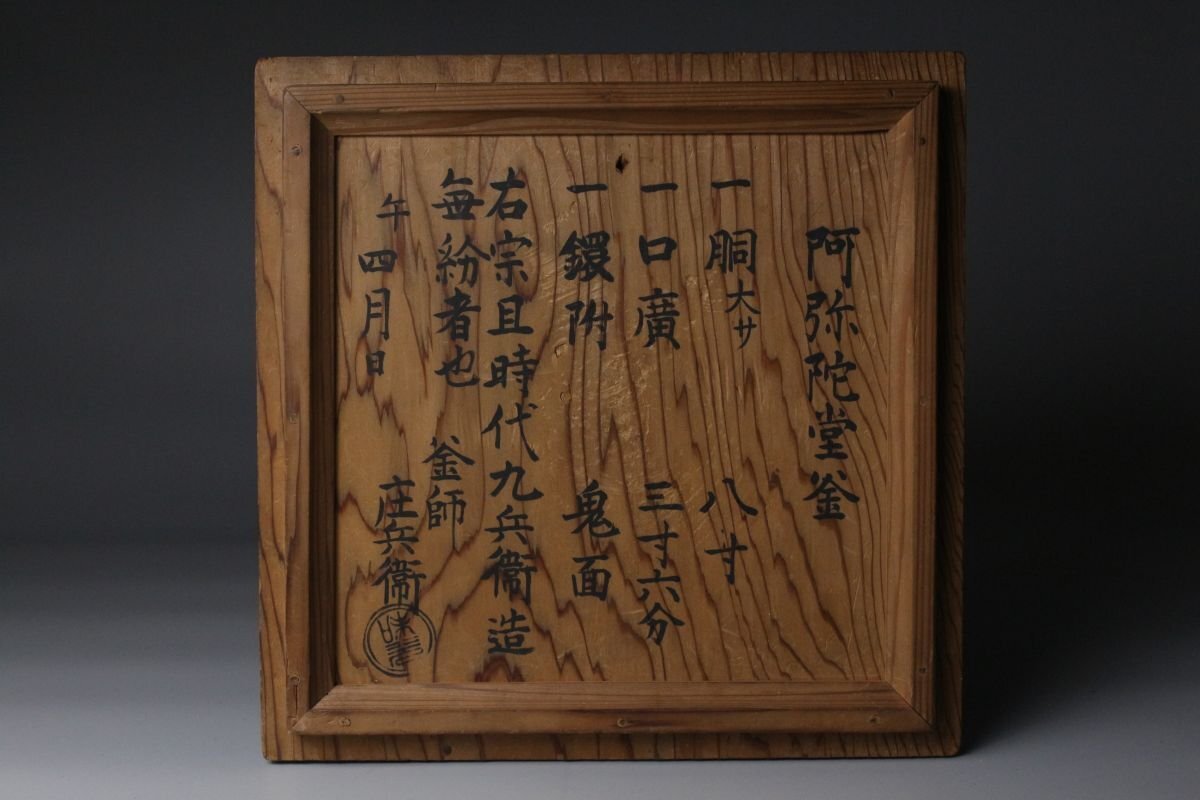 阿弥陀堂釜
一 胴大サ 八寸
一 口廣 三寸六分
一 鐶附 鬼面
右宗旦時代九兵衞造
毎紛者也
釜師
午四月日
庄兵衞